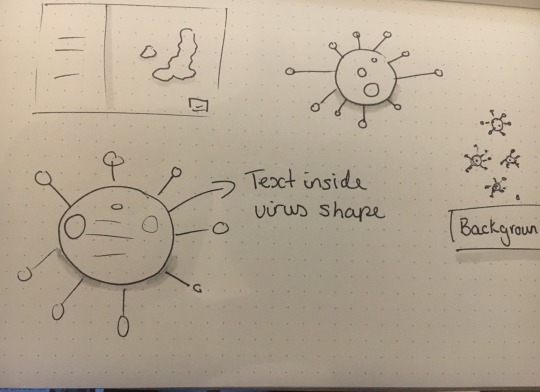 Text inside
virus shape
Backgroun